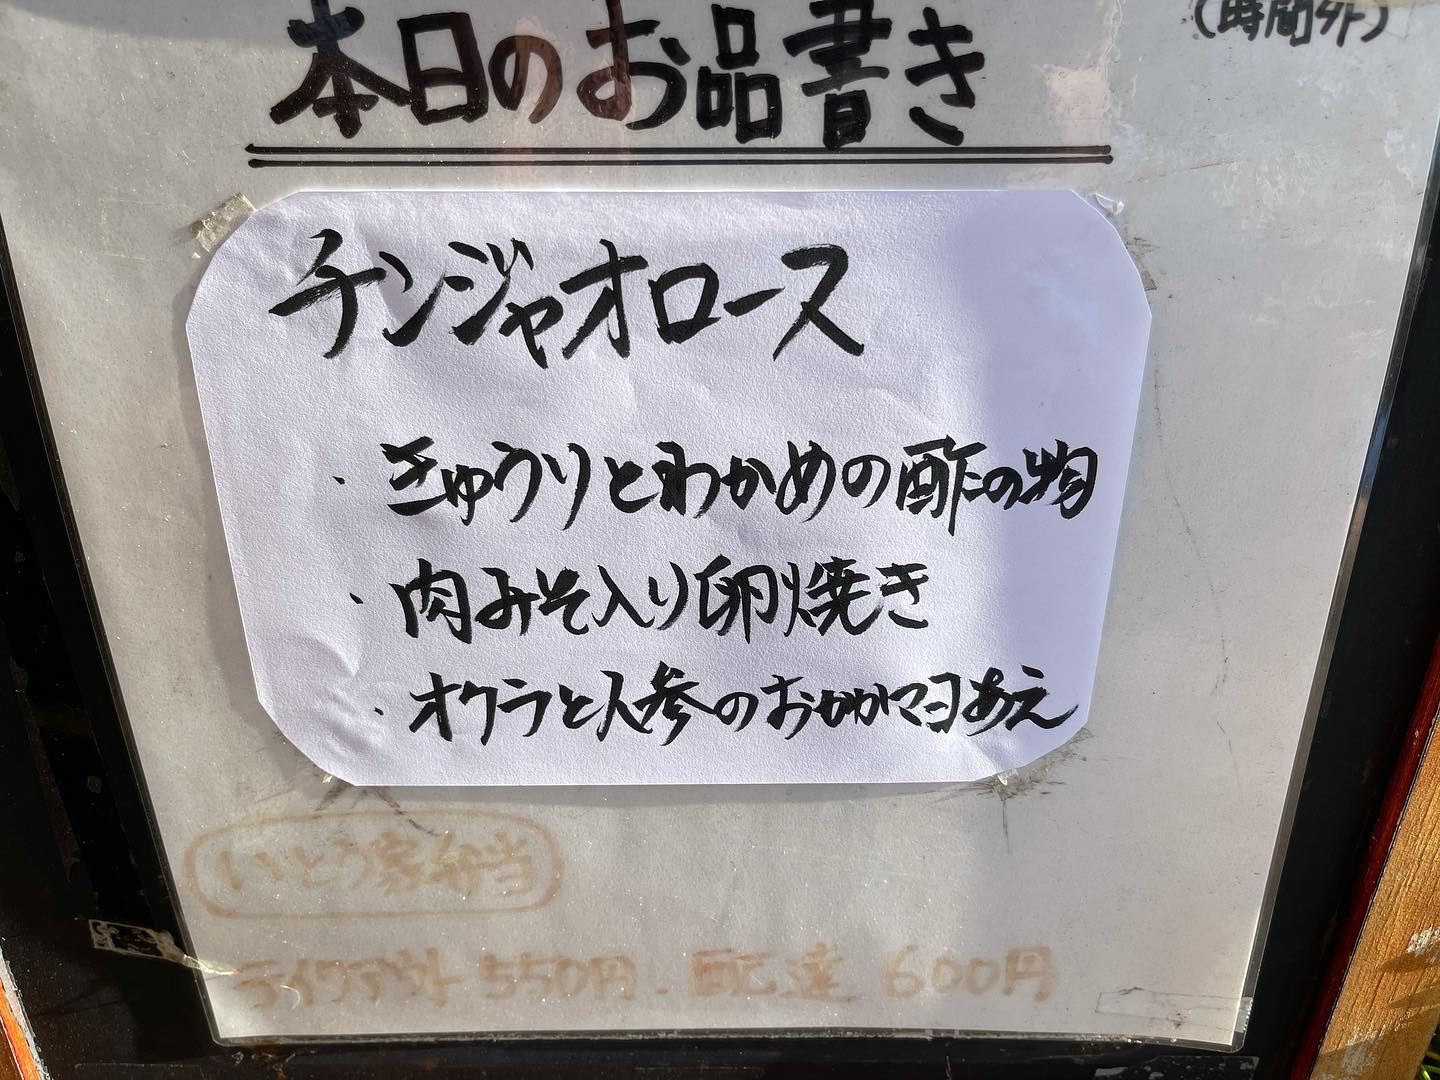 (時間外)
本日のお品書き
チンジャオロース
・きゅうりとわかめの酢の物
・肉みそ入り卵焼き
・オクラと人参のおかかマヨあえ
いとう家弁当
テイクアウト550円.配達 600円